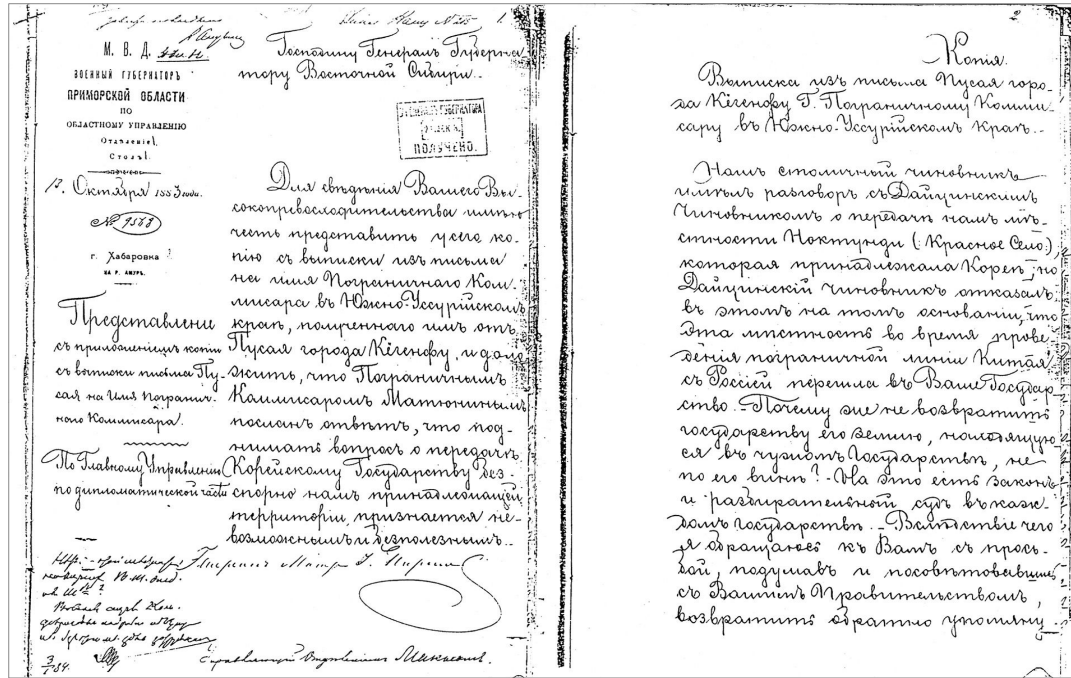 1.
М. В. Д.
ВОЕННЫЙ ГУБЕРНАТОРЪ
ПРИМОРСКОЙ ОБЛАСТИ
ПО
ОБЛАСТНОМУ УПРАВЛЕНІЮ
Отдѣленіе 1.
Столъ 1.
Октября 1883 года.
№ 9568
г. Хабаровка
НА Р. АМУРѢ.
Представленіе
съ приложеніемъ копіи
съ выписки письма Пу-
сая на имя Погранич-
наго Коммисара.
По Главному Управленію
по дипломатической части
Господину Генералъ Губерна-
тору Восточной Сибири.
ПОЛУЧЕНО.
Для свѣдѣнія Вашего Вы-
сокопревосходительства имѣю
честь представить у сего ко-
пію съ выписки изъ письма
на имя Пограничнаго Ком-
мисара въ Южно-Уссурійскомъ
краѣ, полученнаго имъ отъ
Пусая города Кёгенфу, и доло-
жить, что Пограничнымъ
Коммисаромъ Матюнинымъ
посланъ отвѣтъ, что под-
нимать вопросъ о передачѣ
Корейскому Государству без-
спорно намъ принадлежащей
территоріи, признается не-
возможнымъ и безполезнымъ.
3/1 84.
2
Копія.
Выписка изъ письма Пусая горо-
да Кёгенфу Г. Пограничному Комми-
сару въ Южно-Уссурійскомъ краѣ.
Нашъ столичный чиновникъ
имѣлъ разговоръ съ Дайцинскимъ
Чиновникомъ о передачѣ намъ мѣ-
стности Ноктунди (: Красное Село:),
которая принадлежала Кореѣ; но
Дайцинскій чиновникъ отказалъ
въ этомъ на томъ основаніи, что
эта мѣстность во время прове-
денія пограничной линіи Китая
съ Россіей перешла въ Ваше Государ-
ство. Почему же не возвратить
государству его землю, находящую-
ся въ чужомъ Государствѣ, не
по его винѣ? - На это есть законъ
и разбирательный судъ въ каж-
домъ государствѣ. Вслѣдствіе чего
я обращаюсь къ Вамъ съ прось-
бой, подумавъ и посовѣтовавшись
съ Вашимъ Правительствомъ,
возвратить обратно упомяну-